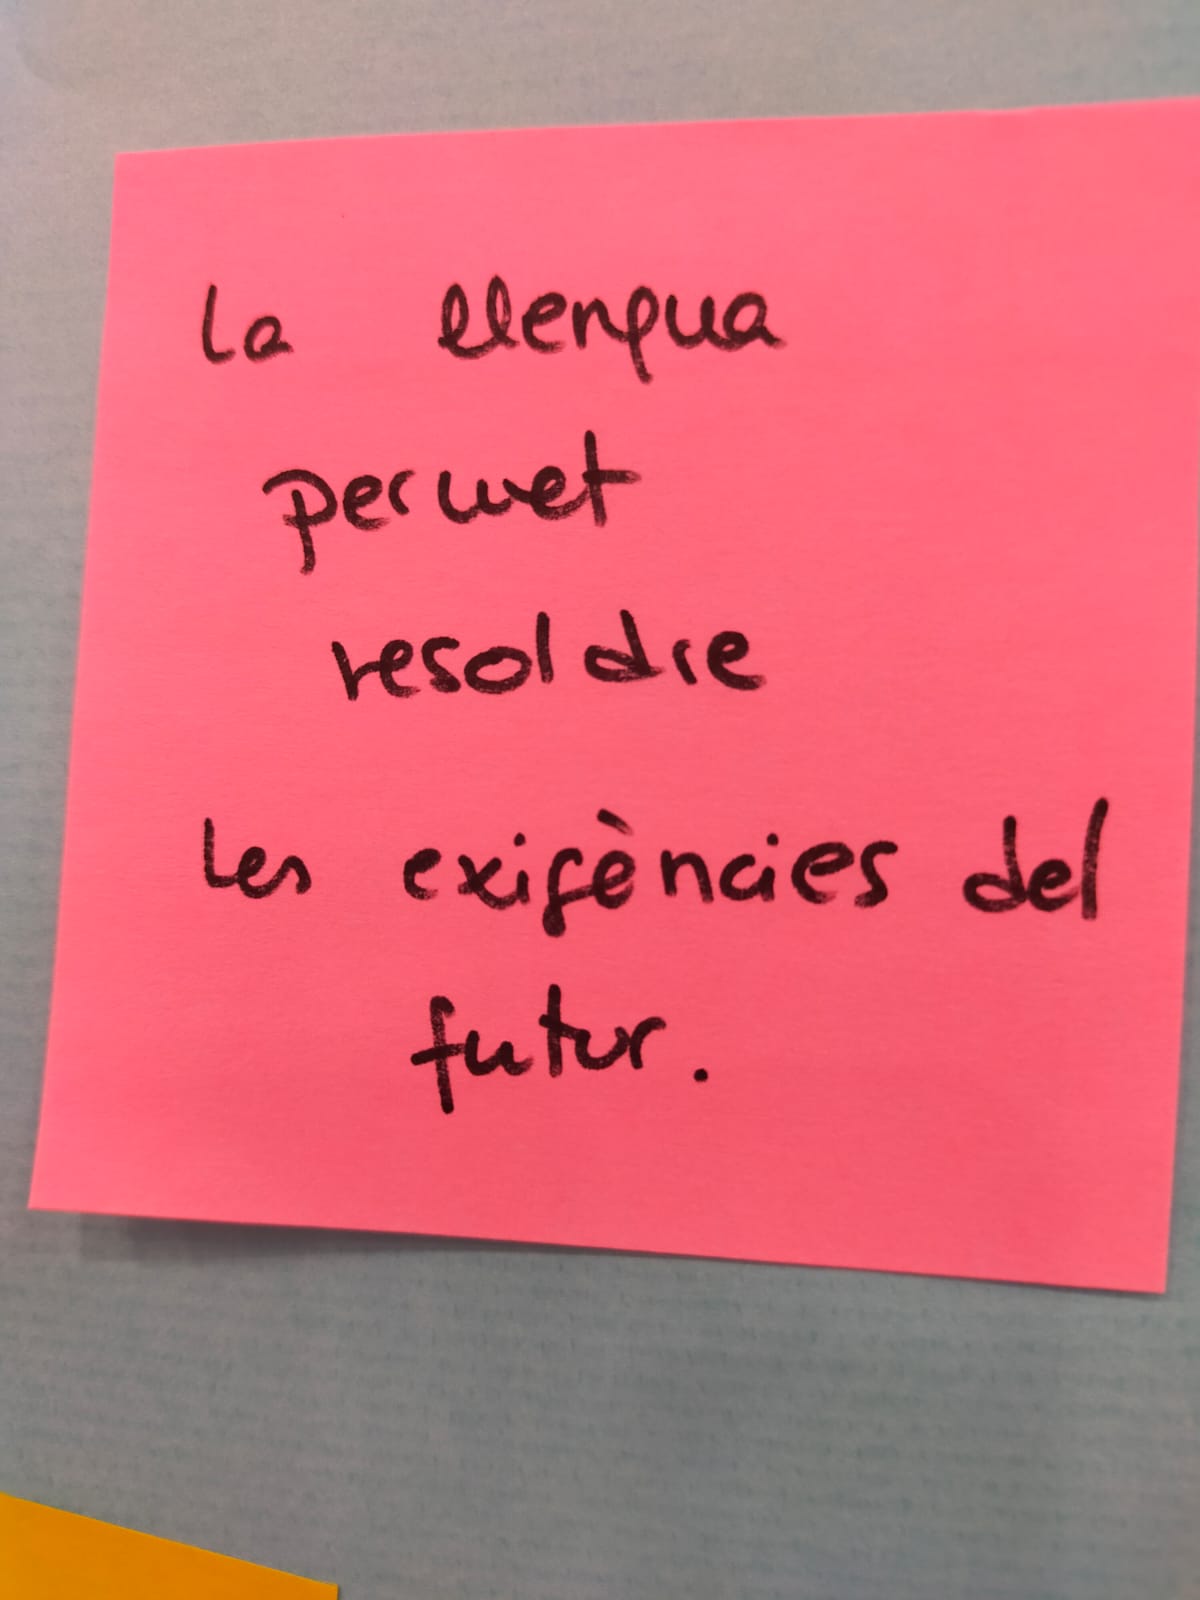 La llengua
permet
resoldre
les exigències del
futur.